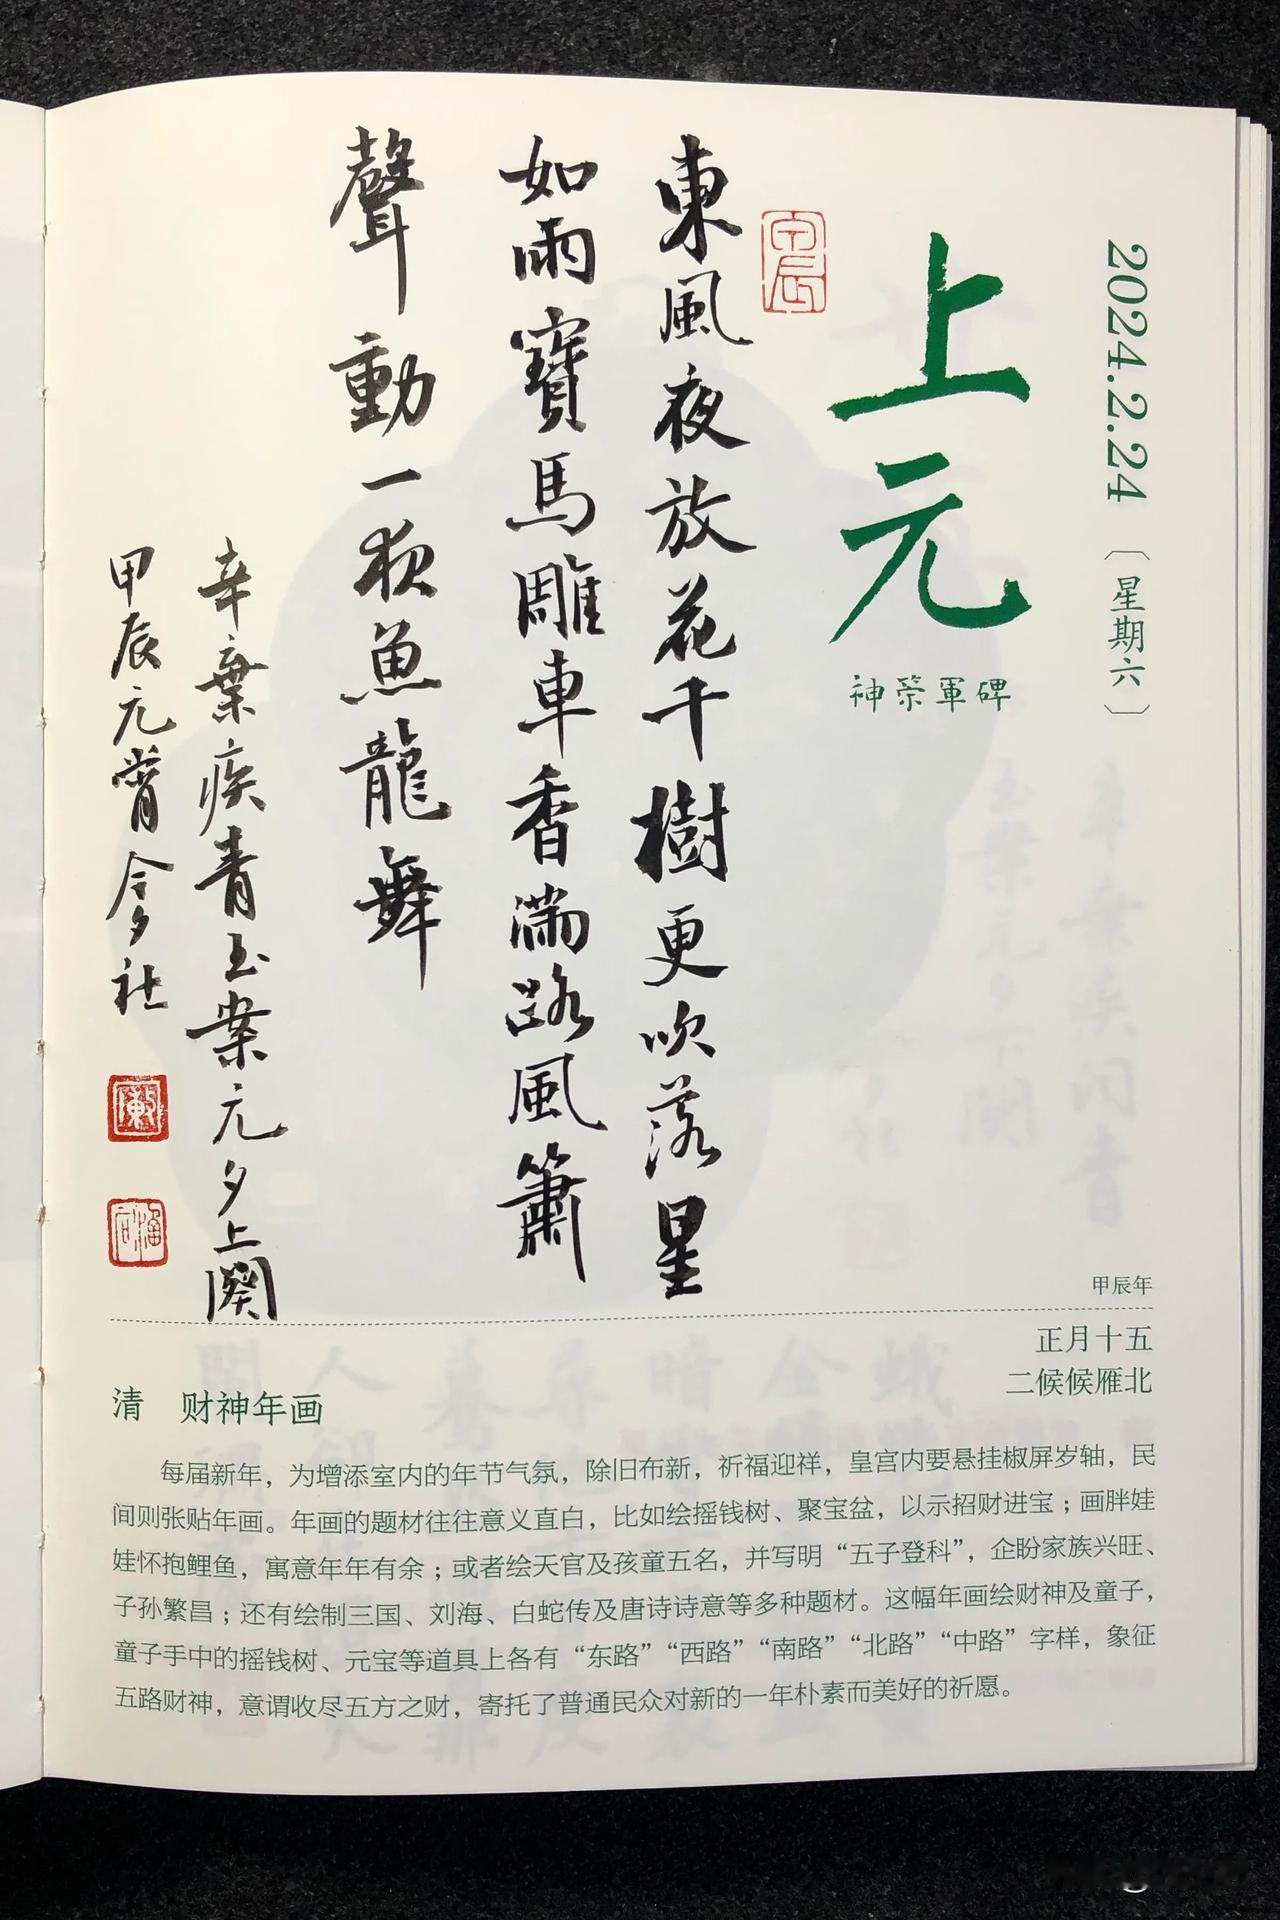 2024.2.24〔星期六〕
上元
神策軍碑
東風夜放花千樹更吹落星
如雨寶馬雕車香滿路風簫
聲動一夜魚龍舞
辛棄疾青玉案元夕上闋
甲辰元宵社
甲辰年
正月十五
二候候雁北
清　财神年画
每届新年，为增添室内的年节气氛，除旧布新，祈福迎祥，皇宫内要悬挂椒屏岁轴，民
间则张贴年画。年画的题材往往意义直白，比如绘摇钱树、聚宝盆，以示招财进宝；画胖娃
娃怀抱鲤鱼，寓意年年有余；或者绘天官及孩童五名，并写明“五子登科”，企盼家族兴旺、
子孙繁昌；还有绘制三国、刘海、白蛇传及唐诗诗意等多种题材。这幅年画绘财神及童子，
童子手中的摇钱树、元宝等道具上各有“东路”“西路”“南路”“北路”“中路”字样，象征
五路财神，意谓收尽五方之财，寄托了普通民众对新的一年朴素而美好的祈愿。